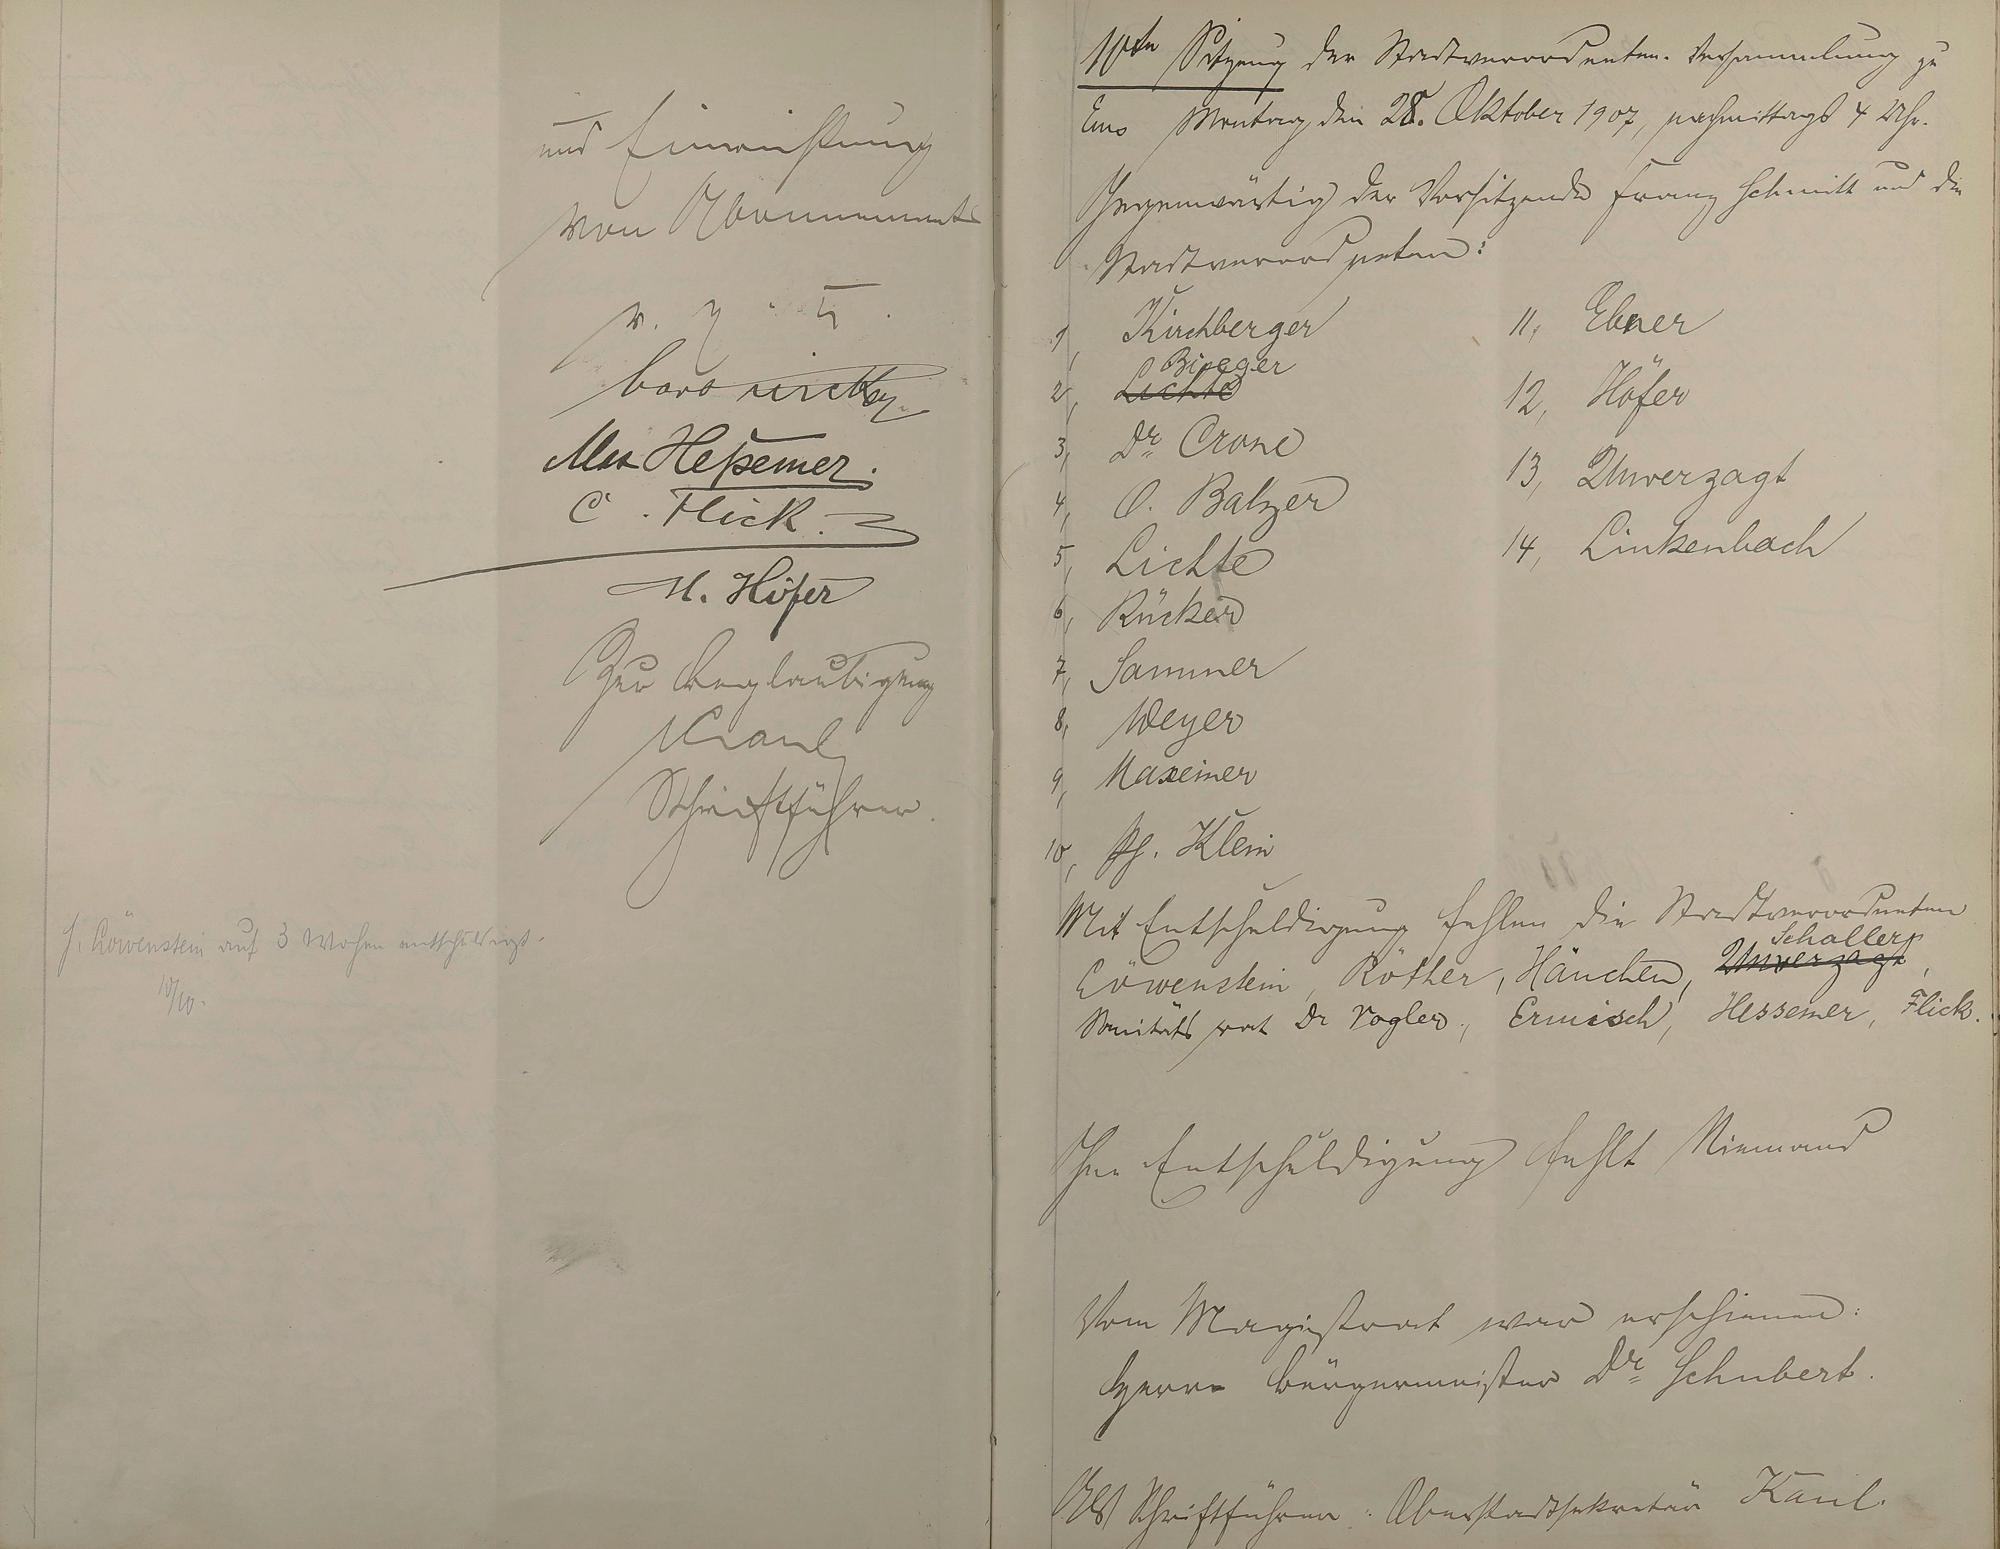 und Einrichtung
von Abonnements
v. g. u.
Max Heßemer.
C. Flick.
M. Höfer
Zur Beglaubigung
Kaul
Schriftführer.
J. Löwenstein auf 3 Wochen entschuldigt.
10/10.
10te Sitzung der Stadtverordneten-Versammlung zu
Ems Montag den 28. Oktober 1907, nachmittags 4 Uhr.
Gegenwärtig der Vorsitzende Franz Schmitt und die
Stadtverordneten:
1, Kirchberger
Bieger
2, Lichte
3, Dr. Crone
4, O. Balzer
5, Lichte
6, Rücker
7, Sammer
8, Weyer
9, Maxeiner
10, Ph. Klein
11, Ebner
12, Höfer
13, Unverzagt
14, Linkenbach
Mit Entschuldigung fehlen die Stadtverordneten
Schaller
Löwenstein, Röther, Hänchen, Unverzagt,
Sanitätsrat Dr Vogler, Ermisch, Hessemer, Flick.
Ohne Entschuldigung fehlt Niemand
Vom Magistrat war erschienen:
Herr Bürgermeister Dr. Schubert.
Als Schriftführer: Oberstadtsekretär Kaul.